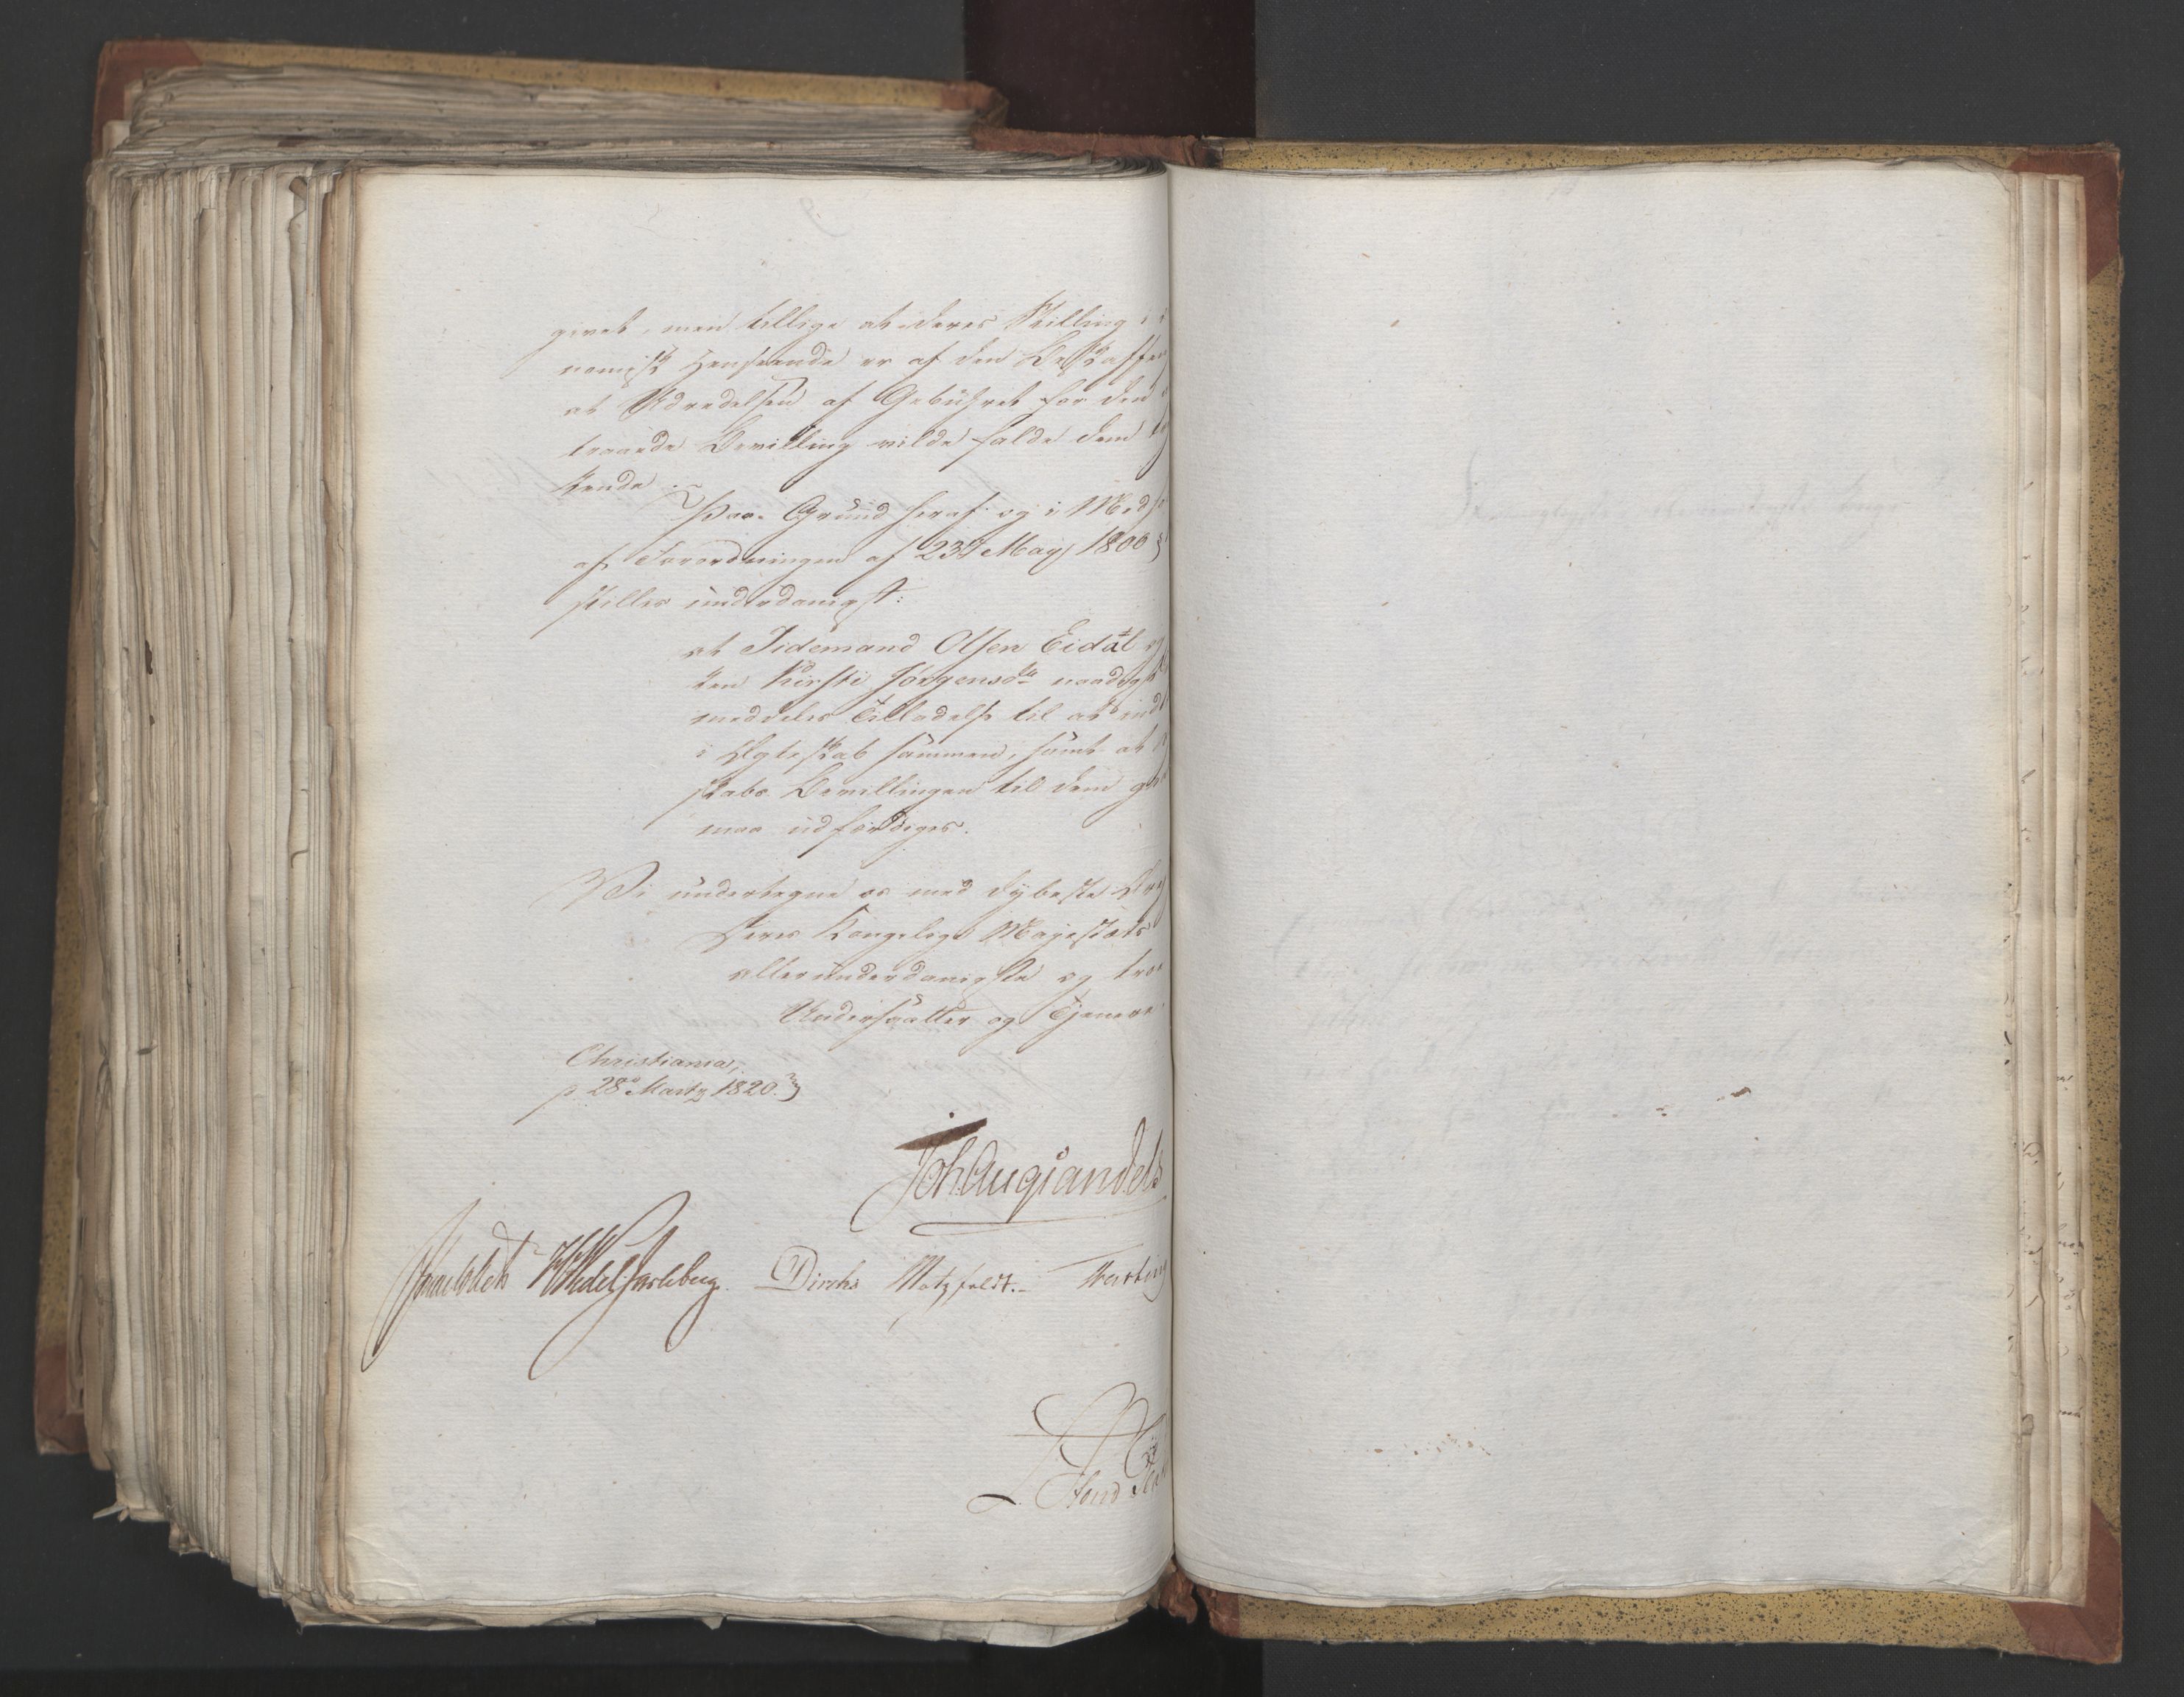 givet, men tillige at deres Stilling i
nomisk Henseende er af den Beskaffen
at Udredelsen af Gebuhret for den
traaede Bevilling vilde falde dem
kende.
Paa Grund heraf og i Medh
af Forordningen af 23de May 1800 §
stilles underdanigst:
at Tidemand Olsen Eidat og
ten Kirsti Jörgensdtr naadigst
meddeles Tilladelse til at indt
i Ægteskab sammen, samt at
skabs Bevillingen til dem gra
maa udfærdiges.
Vi undertegne os med dybeste Ære
Deres Kongelige Majestæts
allerunderdanigste og troe
Undersaatter og Tjenere
Christiania,
d. 28de Martz 1820.
Joh Aug Sandels
Sommerhielm HWedelJarlsberg. Diriks Motzfeldt. Fasting